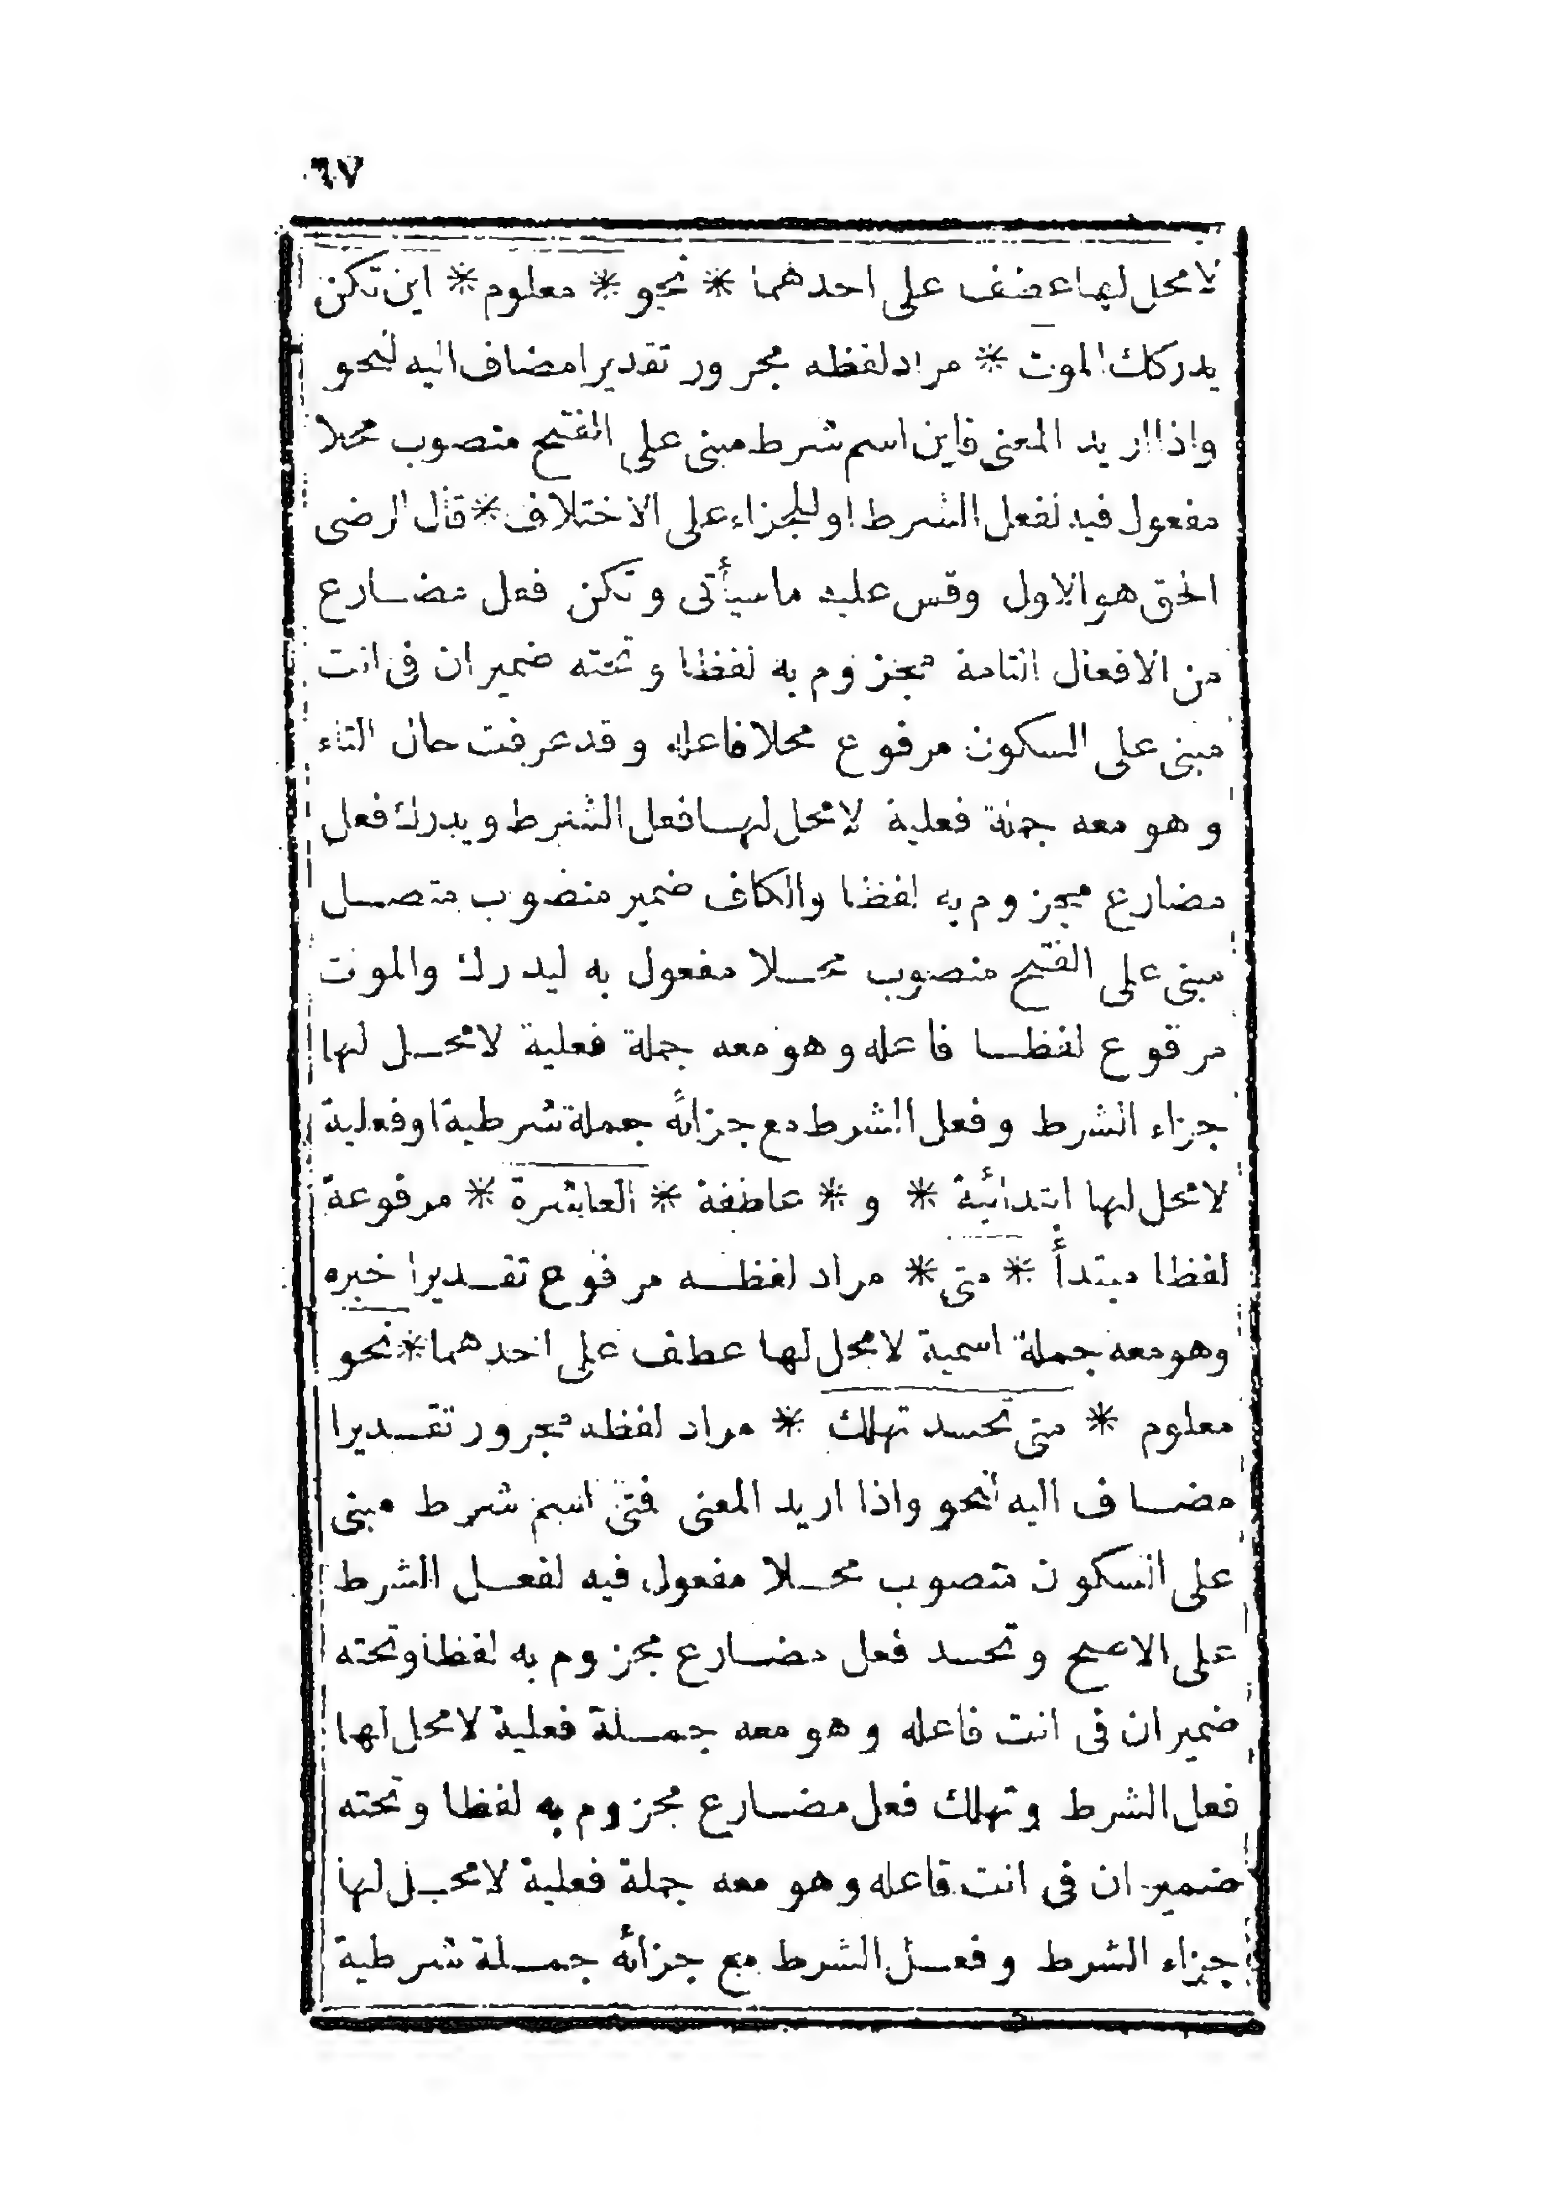 ٦٧
لا محل لها عطف على احدهما * نحو * معلوم * اين تكن
يدركك الموت * مراد لفظه مجرور تقديرا مضاف اليه لنحو
واذا اريد المعنى فاين اسم شرط مبنى على الفتح منصوب محلا
مفعول فيه لفعل الشرط او للجزاء على الاختلاف * قال الرضى
الحق هو الاول وقس عليه ما سيأتى وتكن فعل مضارع
من الافعال التامة مجزوم به لفظا وتحته ضمير ان فى انت
مبنى على السكون مرفوع محلا فاعله وقد عرفت حال التاء
وهو معه جملة فعلية لا محل لها فعل الشرط ويدرك فعل
مضارع مجزوم به لفظا والكاف ضمير منصوب متصل
مبنى على الفتح منصوب محلا مفعول به ليدرك والموت
مرفوع لفظا فاعله وهو معه جملة فعلية لا محل لها
جزاء الشرط وفعل الشرط مع جزائه جملة شرطية او فعلية
لا محل لها ابتدائية * و * عاطفة * العاشرة * مرفوعة
لفظا مبتدأ * متى * مراد لفظه مرفوع تقديرا خبره
وهو معه جملة اسمية لا محل لها عطف على احدهما * نحو
معلوم * متى تحسد تهلك * مراد لفظه مجرور تقديرا
مضاف اليه لنحو واذا اريد المعنى فمتى اسم شرط مبنى
على السكون منصوب محلا مفعول فيه لفعل الشرط
على الاصح وتحسد فعل مضارع مجزوم به لفظا وتحته
ضمير ان فى انت فاعله وهو معه جملة فعلية لا محل لها
فعل الشرط وتهلك فعل مضارع مجزوم به لفظا وتحته
ضمير ان فى انت فاعله وهو معه جملة فعلية لا محل لها
جزاء الشرط وفعل الشرط مع جزائه جملة شرطية